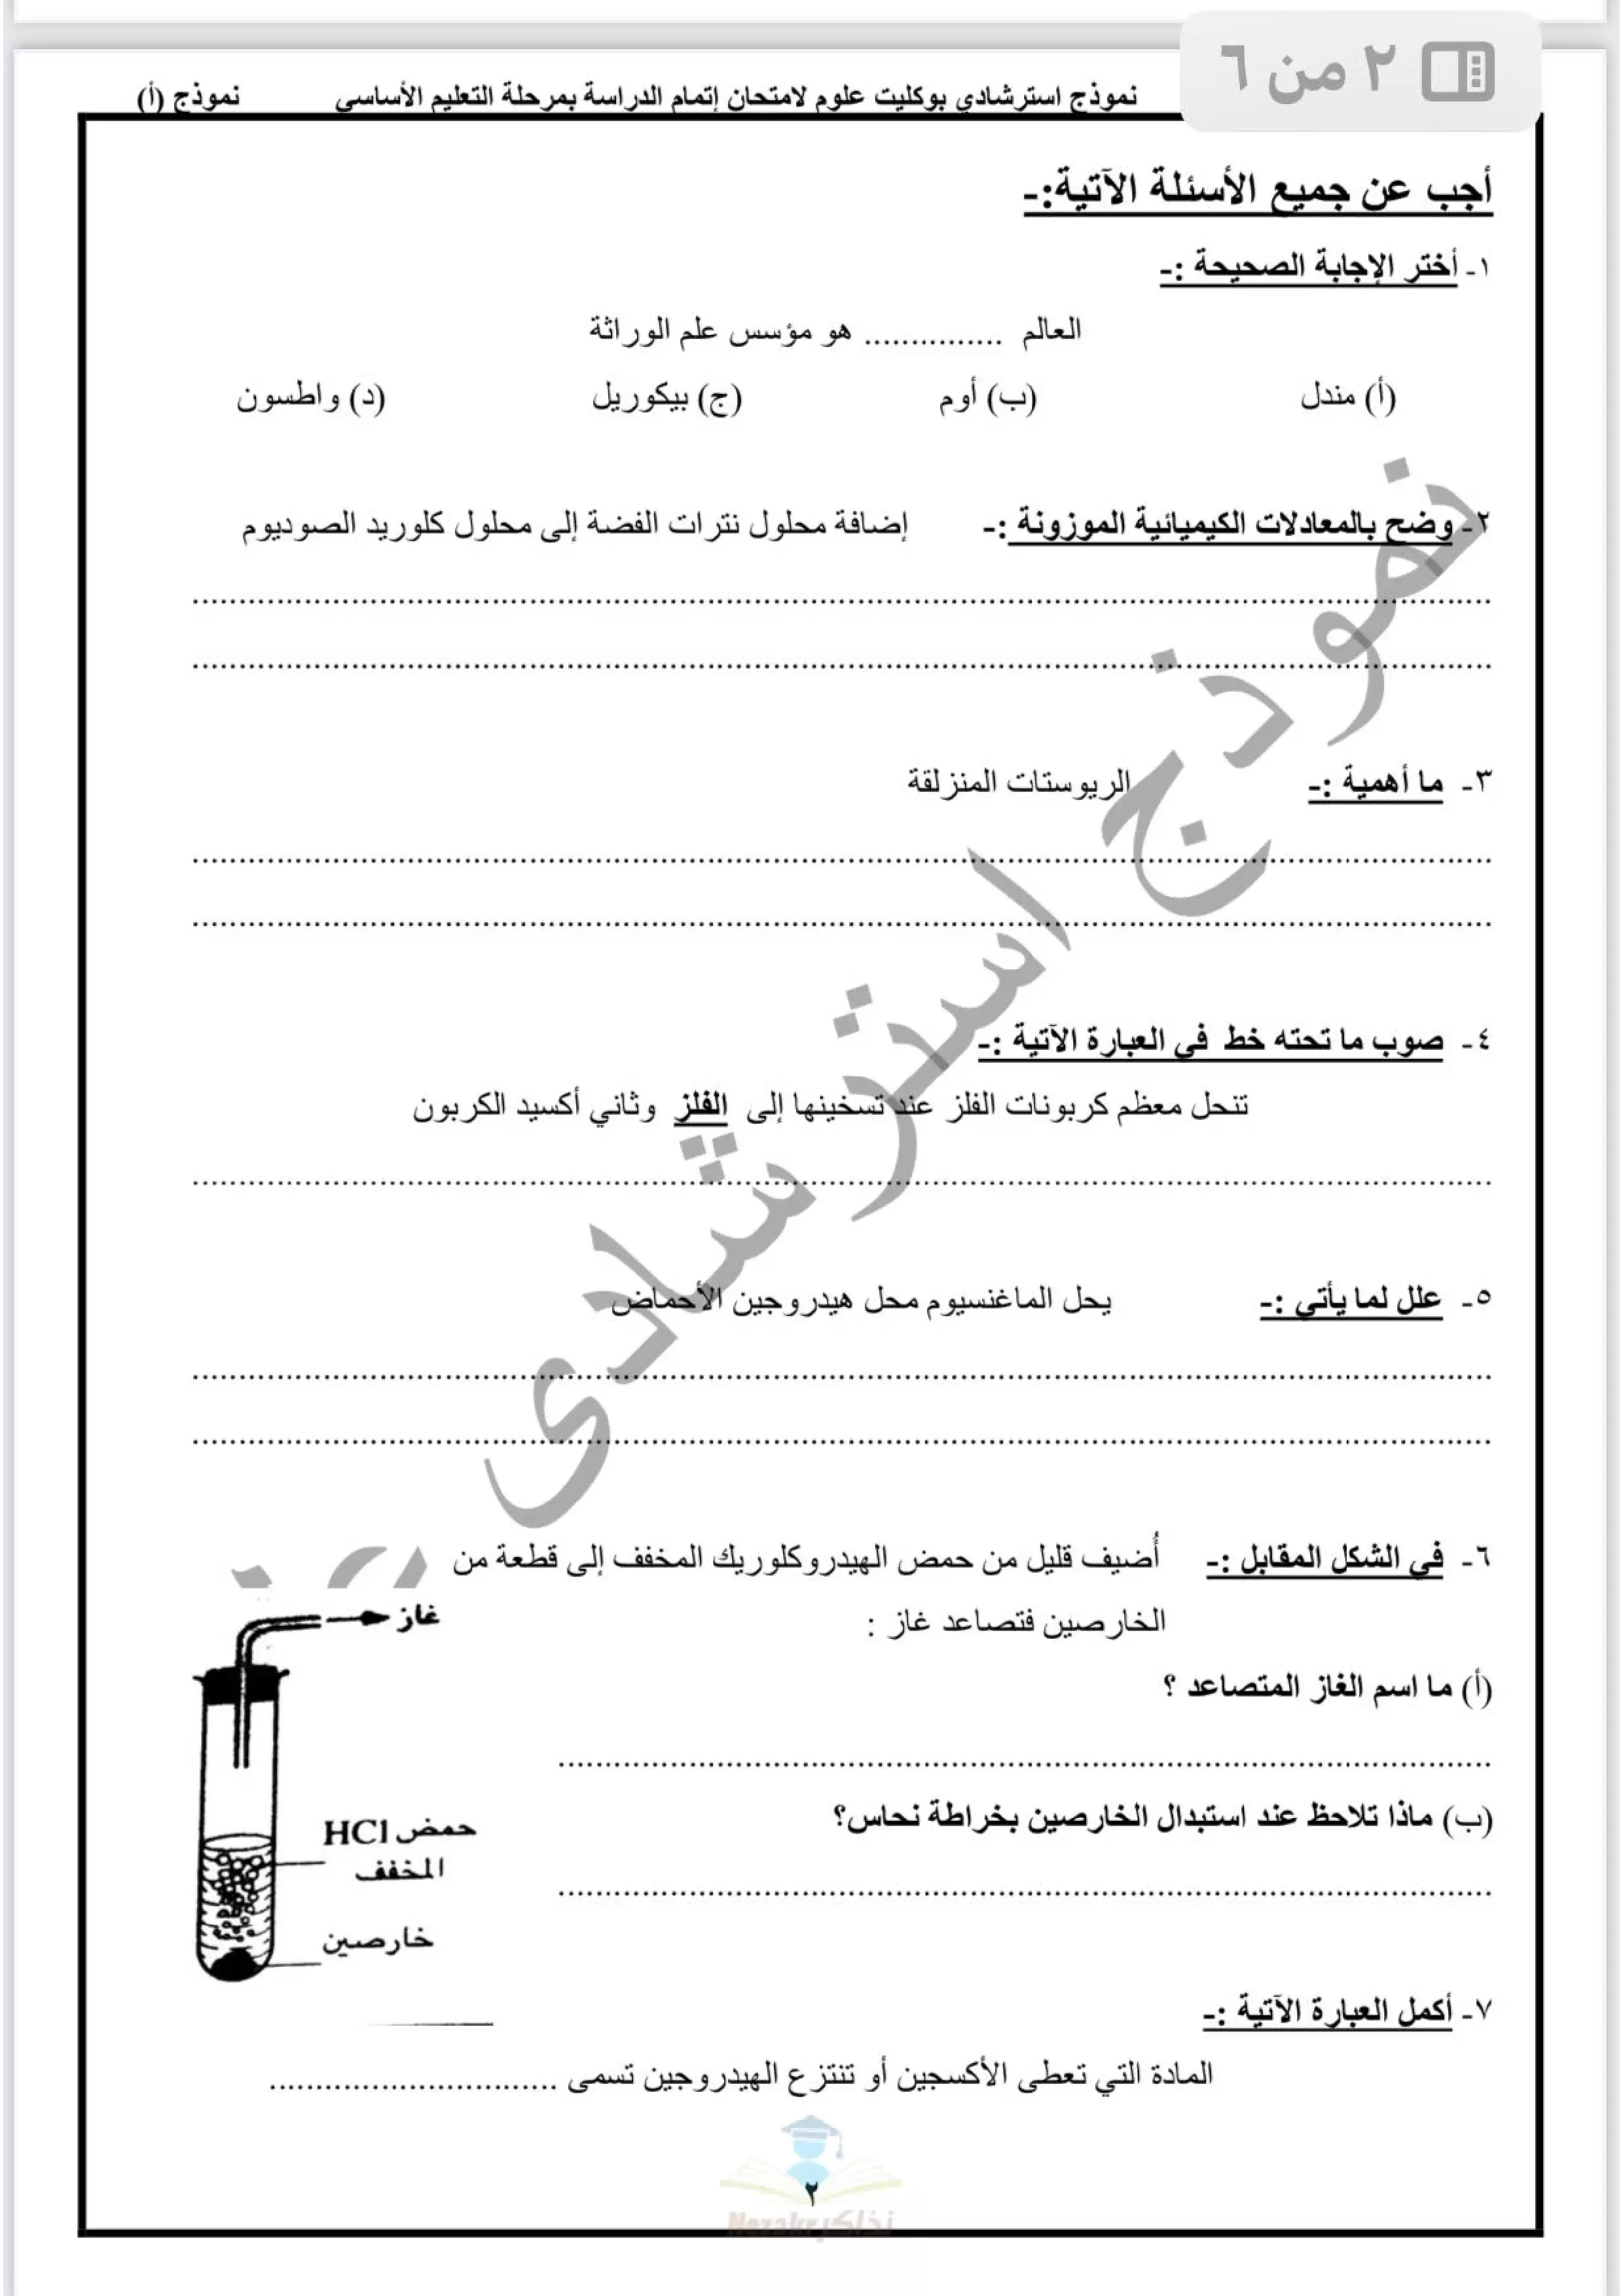 ٢ من ٦
نموذج استرشادي بوكليت علوم لامتحان إتمام الدراسة بمرحلة التعليم الأساسي نموذج (أ)
أجب عن جميع الأسئلة الآتية:-
١- أختر الإجابة الصحيحة :-
العالم ............... هو مؤسس علم الوراثة
(أ) مندل (ب) أوم (ج) بيكوريل (د) واطسون
٢- وضح بالمعادلات الكيميائية الموزونة :- إضافة محلول نترات الفضة إلى محلول كلوريد الصوديوم
٣- ما أهمية :- الريوستات المنزلقة
٤- صوب ما تحته خط في العبارة الآتية :-
تنحل معظم كربونات الفلز عند تسخينها إلى الفلز وثاني أكسيد الكربون
٥- علل لما يأتي :- يحل الماغنسيوم محل هيدروجين الأحماض
نموذج استرشادى
٦- في الشكل المقابل :- أُضيف قليل من حمض الهيدروكلوريك المخفف إلى قطعة من
الخارصين فتصاعد غاز :
غاز
(أ) ما اسم الغاز المتصاعد ؟
(ب) ماذا تلاحظ عند استبدال الخارصين بخراطة نحاس؟
حمض HCl
المخفف
خارصين
٧- أكمل العبارة الآتية :-
المادة التي تعطى الأكسجين أو تنتزع الهيدروجين تسمى ...............................
٢
Nezakr نذاكر